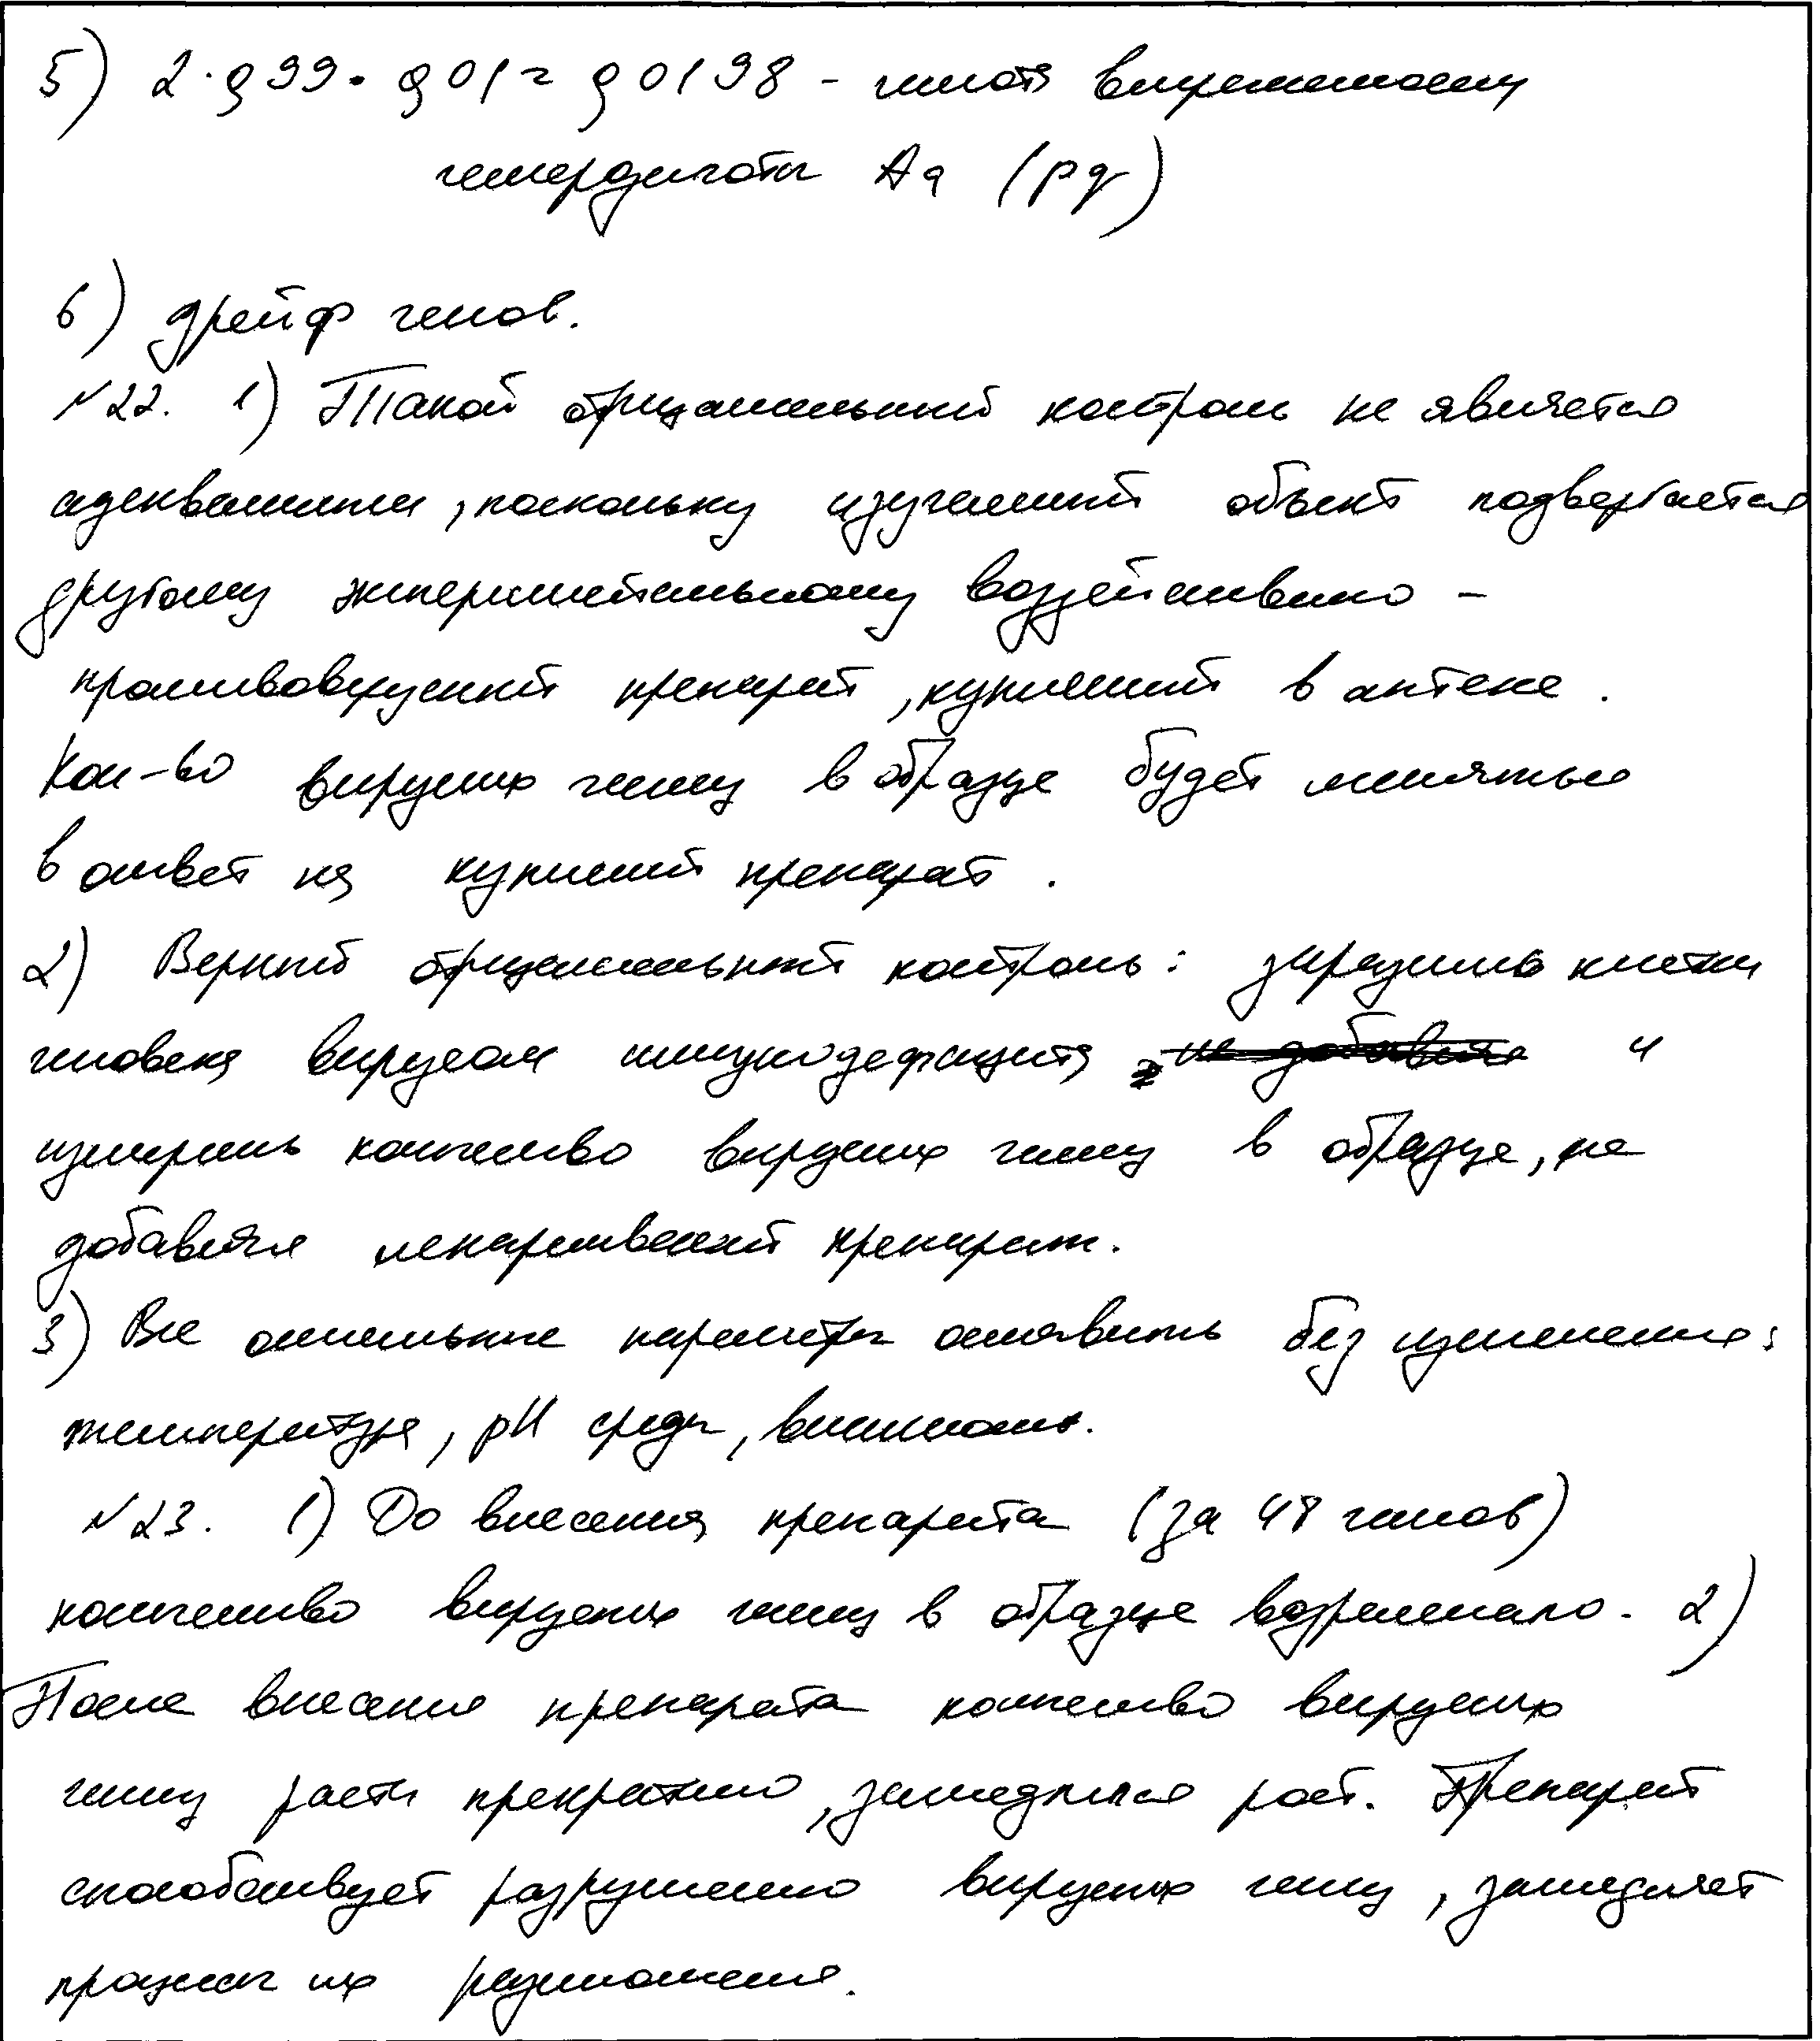 5) 2·0,99·0,01=0,0198 - частота встречаемости
гетерозиготы Аа (pq)
6) дрейф генов.
№22. 1) Такой отрицательный контроль не является
адекватным, поскольку изучаемый объект подвергается
другому экспериментальному воздействию -
противовирусный препарат, купленный в аптеке.
Кол-во вирусных частиц в образце будет меняться
в ответ на купленный препарат.
2) Верный отрицательный контроль: заразить клетки
человека вирусом иммунодефицита и
измерить количество вирусных частиц в образце, не
добавляя лекарственный препарат.
3) Все остальные параметры оставить без изменения:
температура, pH среды, влажность.
№23. 1) До внесения препарата (за 48 часов)
количество вирусных частиц в образце возрастало. 2)
После внесения препарата количество вирусных
частиц расти прекратило, замедлился рост. Препарат
способствует разрушению вирусных частиц, замедляет
процессы их размножения.